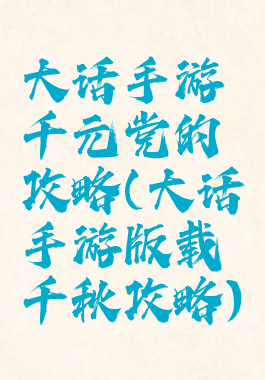 大话手游
千元党的
攻略(大话
手游版载
千秋攻略)